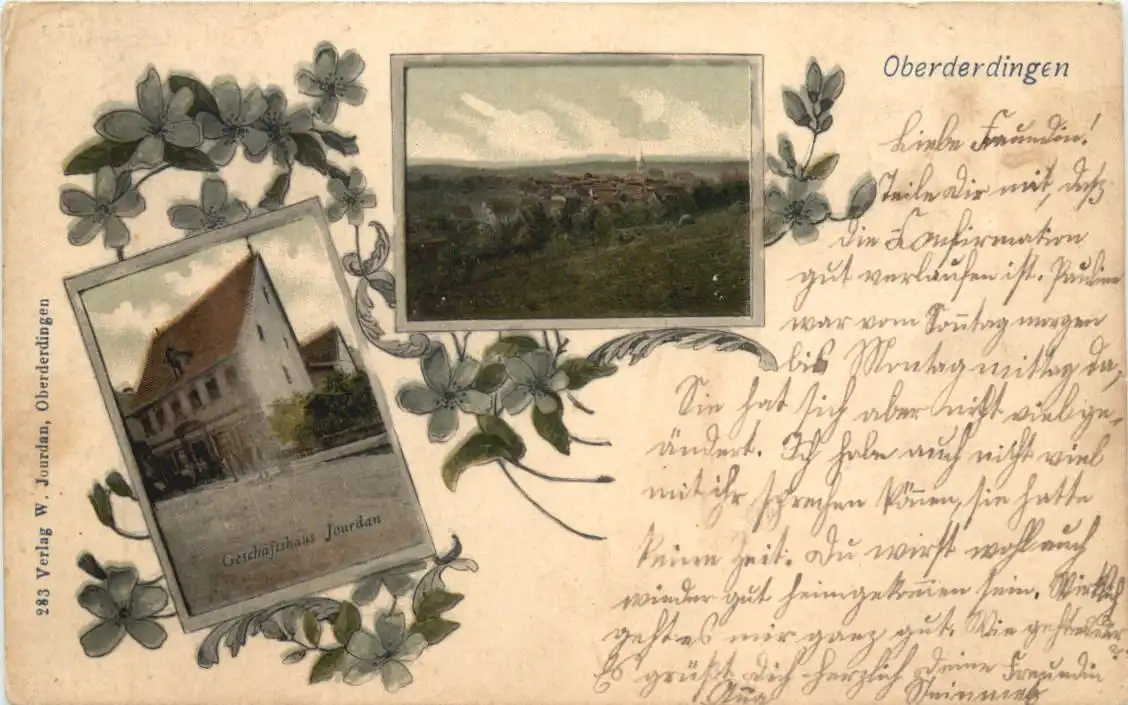 Oberderdingen
Liebe Freundin!
Teile Dir mit, daß
die Konfirmation
gut verlaufen ist. Pauline
war vom Sonntag morgen
bis Montag mittag da,
Sie hat sich aber nicht viel ge-
ändert. Ich habe auch nicht viel
mit ihr sprechen können, sie hatte
keine Zeit. Du wirst wohl auch
wieder gut heimgekommen sein.
geht es mir ganz gut. Wie geht es Dir?
Es grüßt Dich herzlich Deine Freundin
Steinmetz
Geschäftshaus Jourdan
283 Verlag W. Jourdan, Oberderdingen